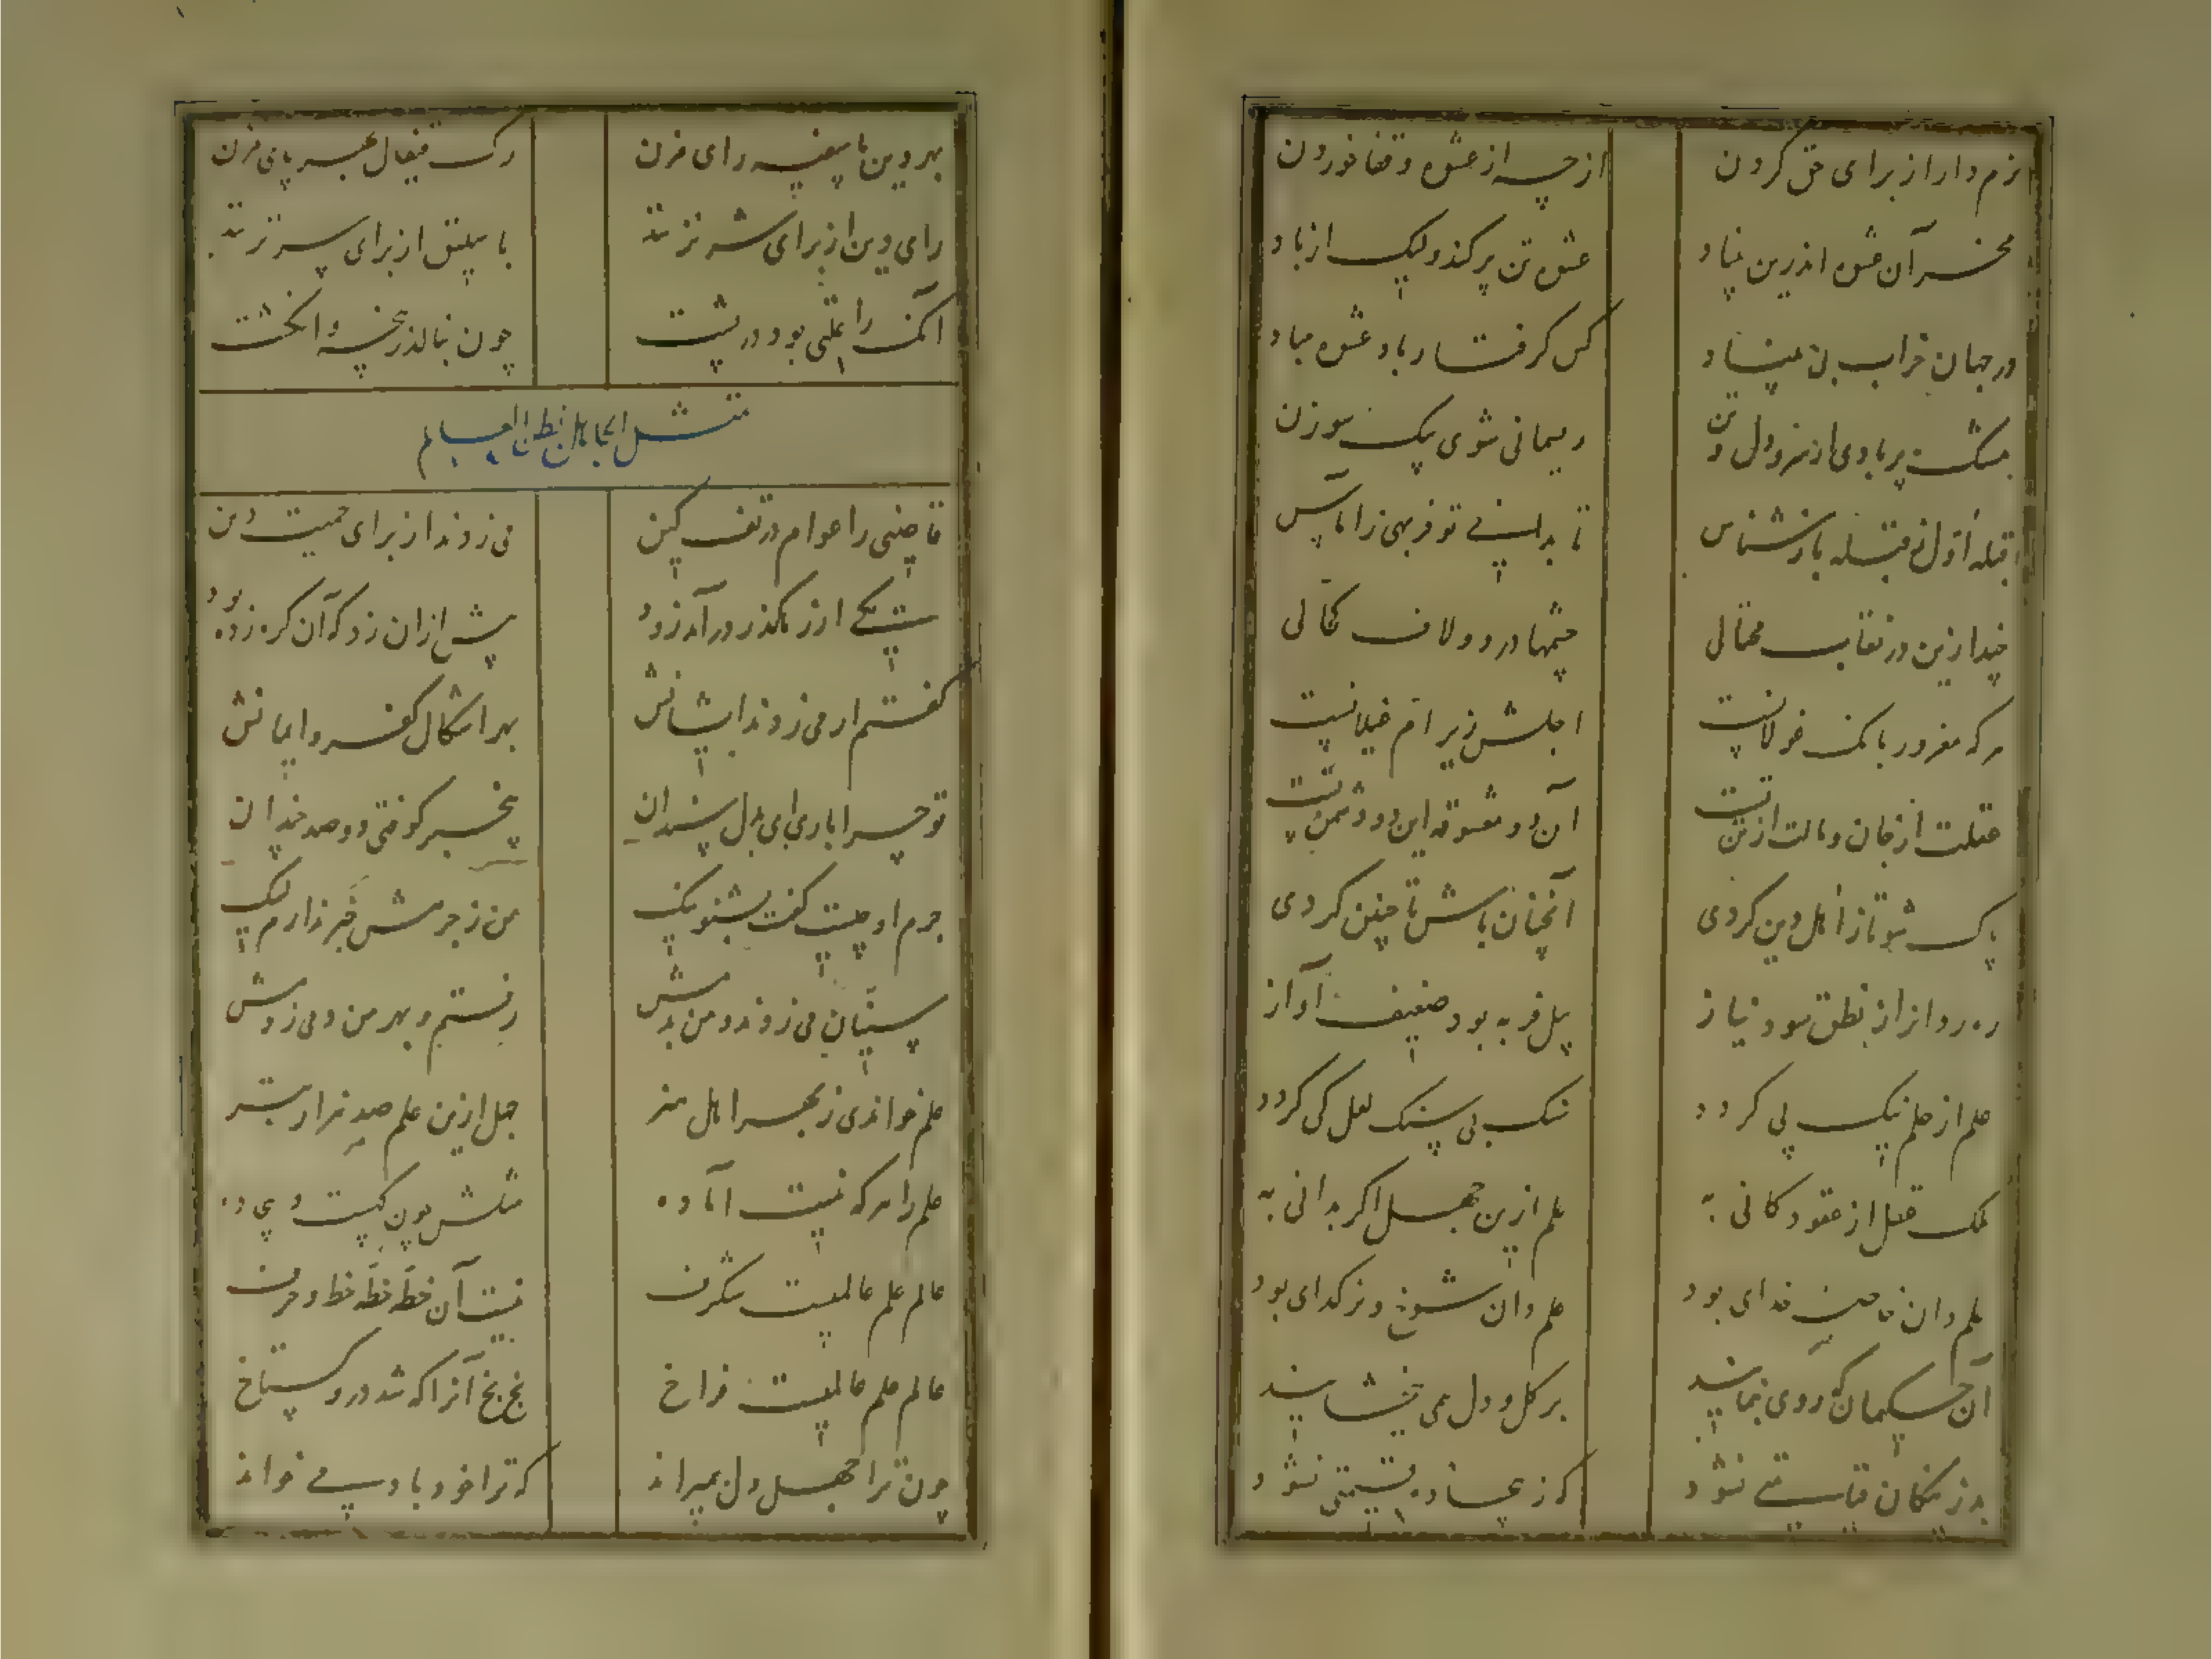 نرم دار از برای حق گردن
از چه از عشوه و قفا خوردن
مخر آن عشوه اندرین بنیاد
عشوه تن پر کند ولیک از باد
در جهان خراب بی بنیاد
کس گرفتار باد عشوه مباد
مشک پر بادی از سر و دل و تن
ریسمانی شوی یک سوزن
قبله اول ز قبله باز شناس
تا بدانی تو فربهی ز اماس
چند ازین در نقاب محتالی
چشمها درد و لاف کحالی
هرکه مغرور بانک غولانست
اجلش زیر ام غیلانست
عقلت از جان و مالت از تنتست
آن دو معشوقه این دو دشمنتست
پاک شو تا ز اهل دین گردی
آنچنان باش تا چنین گردی
ره روانرا ز نطق نبود نیاز
پیل فربه بود ضعیف آواز
علم از حلم نیک پی گردد
سنک بی سنک لعل کی گردد
یک عقل از عقود کانی به
علم ازین جهل اگر بدانی به
علم دان خاص خدای بود
علم دان شوخ و نر گدای بود
آن حکیمان که روی بنمایند
بر گل و دل می بخشایند
بد ز نیکان قیاسی نشود
که ز بیجاده قیمتی نشود
بهر دین با سفیه رای مزن
رک قیفال بهر پای مزن
رای دین از برای شه نزنند
باسلیق از برای سر نزنند
آنک را علتی بود در پشت
چون بنالد ز خنصر و انگشت
تمثل الجاهل بطن العالم
قاضیی را عوام در تف کین
می زدند از برای حمیت دین
یکی از رهگذر درآمد زود
بیش ازان زد که آن گره زده بود
گفتم ار می زدند ایشانش
بهر اشکال کفر و ایمانش
تو چرا باری ای بدل سندان
بیخبر کوفتی دو صد چندان
جرم او چیست گفت بشنو نیک
من ز جرمش خبر ندارم لیک
سنیان می زدند و من بدمش
رفتم و بهر مزد می زدمش
علم خواندی ز بهر اهل هنر
جهل ازین علم صد هزار بتر
علم را هرکه نیست آماده
مثلش چون و پی ده
عالم علم عالمیست شگرف
نیست آن خطه خطه خط و حرف
عالم علم عالمیست فراخ
بخ بخ آنرا که شد درو گستاخ
چون ترا جهل دل بمیراند
که ترا خود بآدمی خواند